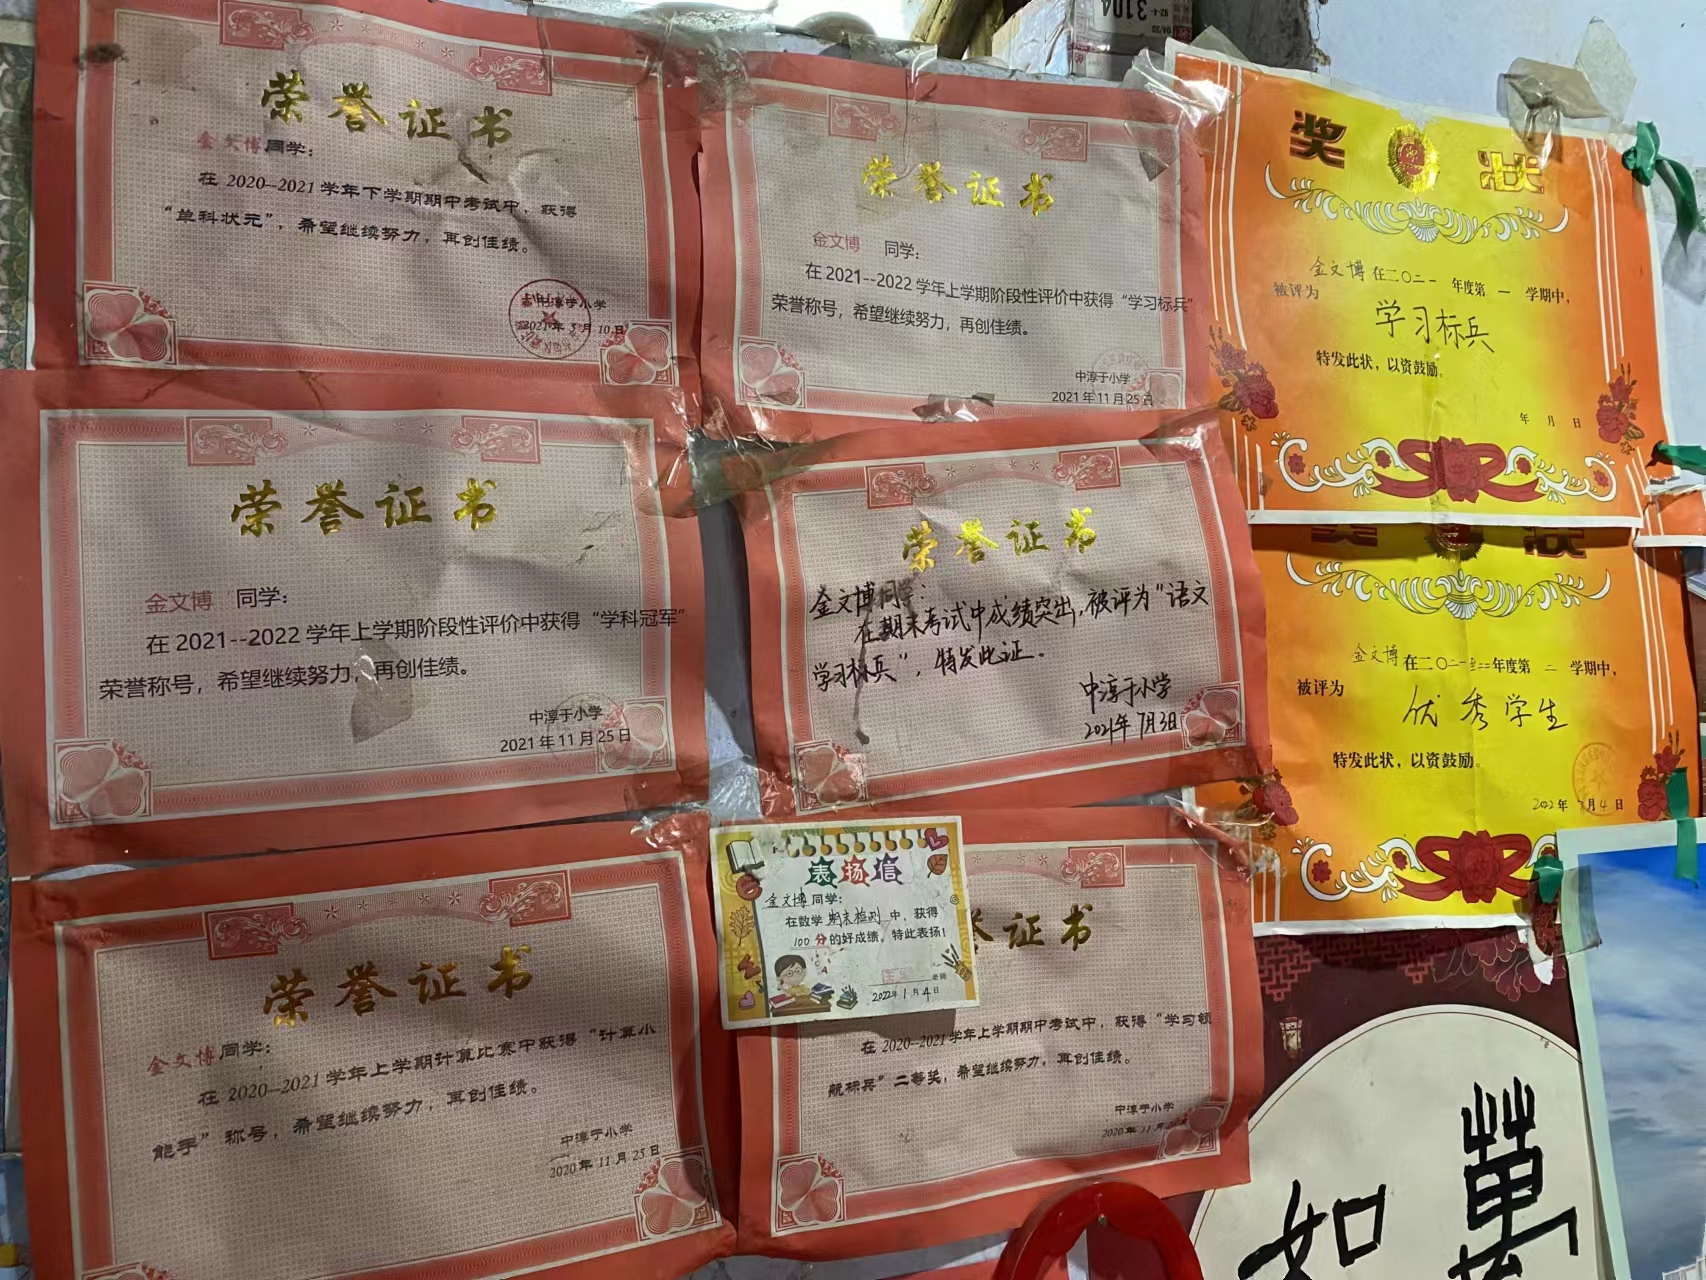 荣誉证书
金文博同学：
在 2020--2021 学年下学期期中考试中，获得
“单科状元”，希望继续努力，再创佳绩。
中淳于小学
2021年5月10日
荣誉证书
金文博 同学：
在 2021--2022 学年上学期阶段性评价中获得“学习标兵”
荣誉称号，希望继续努力，再创佳绩。
中淳于小学
2021年11月25日
奖状
金文博在二〇二一年度第一学期中，
被评为
学习标兵
特发此状，以资鼓励。
年 月 日
荣誉证书
金文博 同学：
在 2021--2022 学年上学期阶段性评价中获得“学科冠军”
荣誉称号，希望继续努力，再创佳绩。
中淳于小学
2021年11月25日
荣誉证书
金文博同学：
在期末考试中成绩突出，被评为“语文
学习标兵”，特发此证。
中淳于小学
2021年7月3日
奖状
金文博在二〇二一至二二年度第二学期中，
被评为
优秀学生
特发此状，以资鼓励。
2022年7月4日
荣誉证书
金文博同学：
在 2020--2021 学年上学期计算比赛中获得“计算小
能手”称号，希望继续努力，再创佳绩。
中淳于小学
2020年11月25日
表扬信
金文博同学：
在数学期末检测中，获得
100分的好成绩。特此表扬！
老师
2022年1月4日
证书
在 2020--2021 学年上学期期中考试中，获得“学习领
航标兵”二等奖，希望继续努力，再创佳绩。
中淳于小学
2020年11月
萬
如
3104